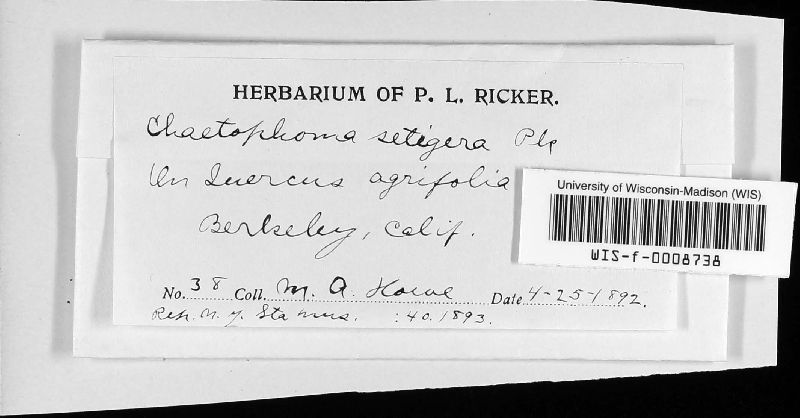 HERBARIUM OF P. L. RICKER.
Chaetophoma setigera Pk
On Quercus agrifolia
Berkeley, Calif.
No. 38 Coll. M. A. Howe Date 4-25-1892.
Rep. N. Y. Sta mus. : 40. 1893.
University of Wisconsin-Madison (WIS)
WIS-f-0008738